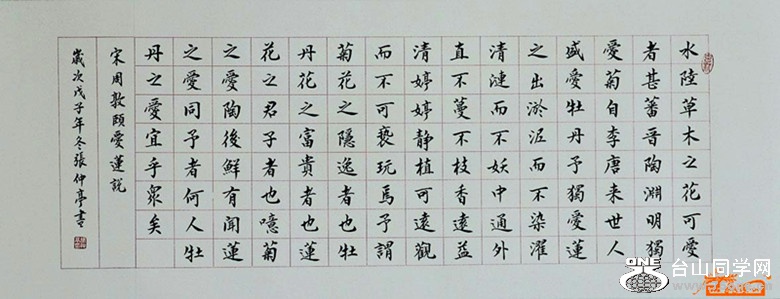 水陸草木之花可愛
者甚蕃晋陶淵明獨
愛菊自李唐来世人
盛愛牡丹予獨愛蓮
之出淤泥而不染濯
清漣而不妖中通外
直不蔓不枝香遠益
清婷婷静植可遠觀
而不可褻玩焉予謂
菊花之隱逸者也牡
丹花之富貴者也蓮
花之君子者也噫菊
之愛陶後鮮有聞蓮
之愛同予者何人牡
丹之愛宜乎眾矣
宋周敦頤愛蓮説
歲次戊子年冬張仲亭書
ONE
台山同学网